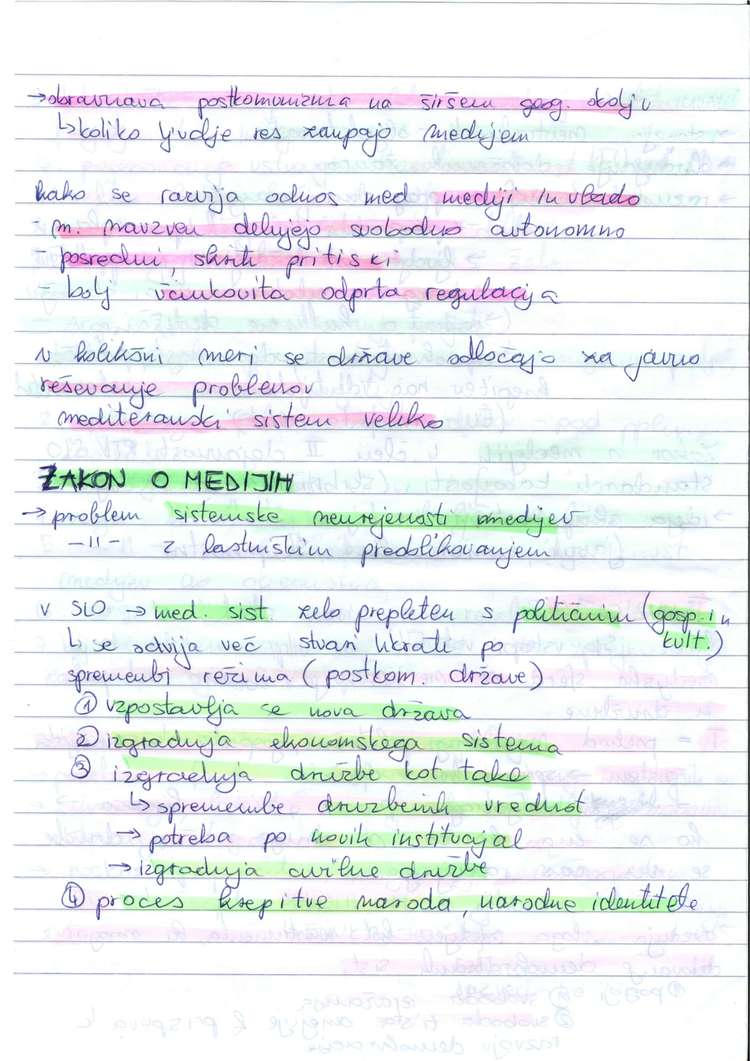 →obravnava postkomunizma na širšem geog. okolju
↳koliko ljudje res zaupajo medijem
kako se razvija odnos med mediji in vlado
- m. navzven delujejo svobodno avtonomno
posredni, skriti pritiski
- bolj učinkovita odprta regulacija
v kolikšni meri se države odločajo za javno
reševanje problemov
mediteranski sistem veliko
ZAKON O MEDIJIH
→ problem sistemske neurejenosti medijev
-11- z lastniškim preoblikovanjem
v SLO → med. sist. zelo prepleten s političnim (gosp. in
kult.)
↳ se odvija več stvari hkrati po
spremembi režima (postkom. države)
① vzpostavlja se nova država
② izgradnja ekonomskega sistema
③ izgradnja družbe kot take
↳ spremembe družbenih vrednot
→ potreba po novih institucijah
→ izgradnja civilne družbe
④ proces krepitve naroda, narodne identitete